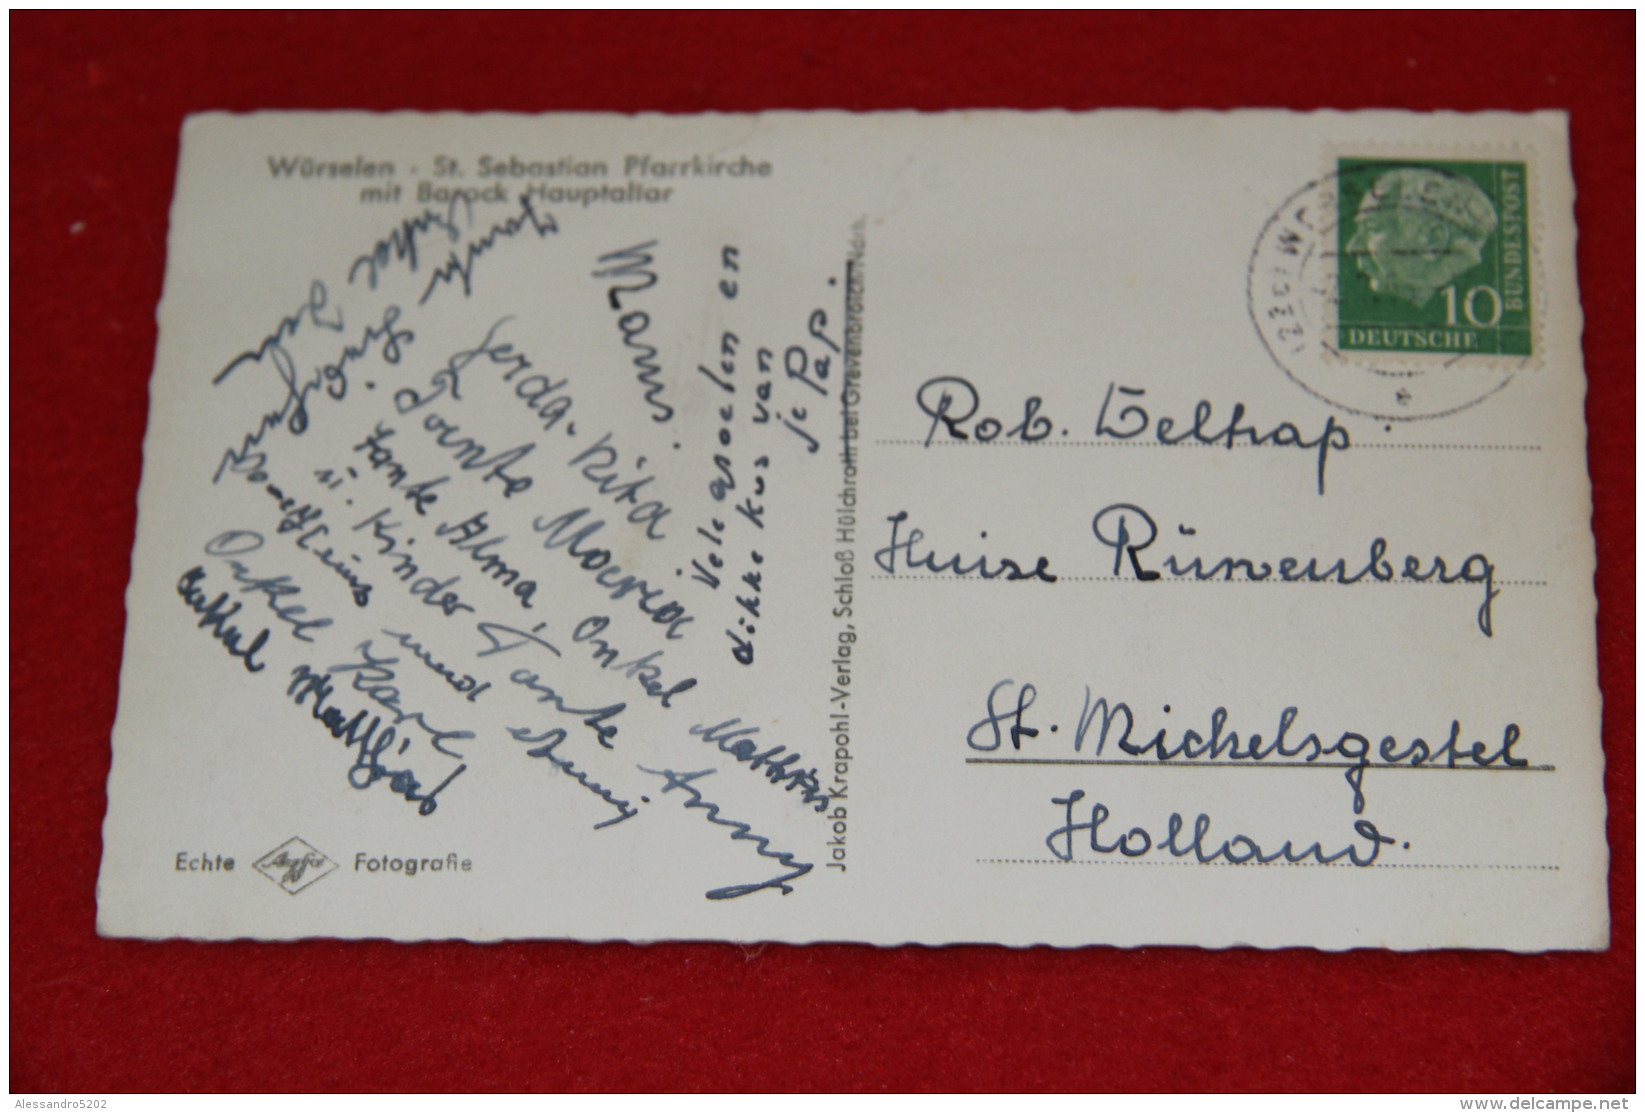 Würselen · St. Sebastian Pfarrkirche
mit Barock Hauptaltar
Mams.
Vele groelen en
dikke kus van
je Pap.
Gerda-Rita
Tante Maria
Tante Alma, Onkel Matthias
u. Kinder Tante Anny
und
Onkel Karl
Echte Agfa Fotografie
Jakob Krapohl-Verlag, Schloß Hülchrath bei Grevenbroich/Ndrh.
10
DEUTSCHE
BUNDESPOST
Rob.
Huize Rünenberg
St. Michelsgestel
Holland.
Alessandro5202
delcampe.net